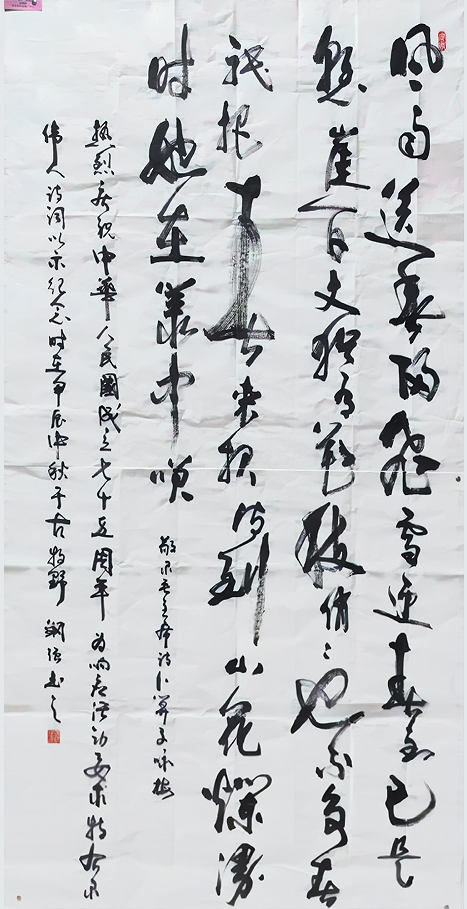 风雨送春归飞雪迎春到已是
悬崖百丈犹有花枝俏〻也不争春
祇把春来报待到山花烂漫
时她在丛中咲
敬录毛主席诗卜算子咏梅
热烈庆祝中華人民國成立七十五周年为响应活动要求特录
伟人诗词以示纪念时在甲辰中秋于古牧野书之